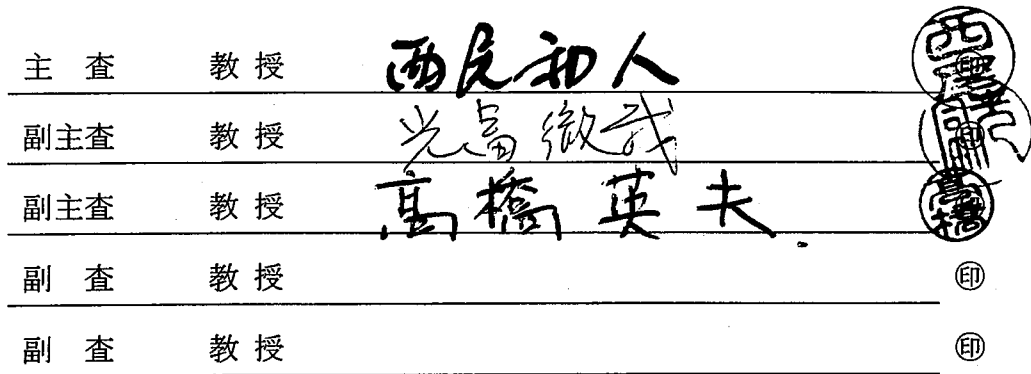 主 査 教 授 西尾和人 ㊞
副主査 教 授 光冨徹哉 ㊞
副主査 教 授 高橋英夫 高橋
副 査 教 授 ㊞
副 査 教 授 ㊞